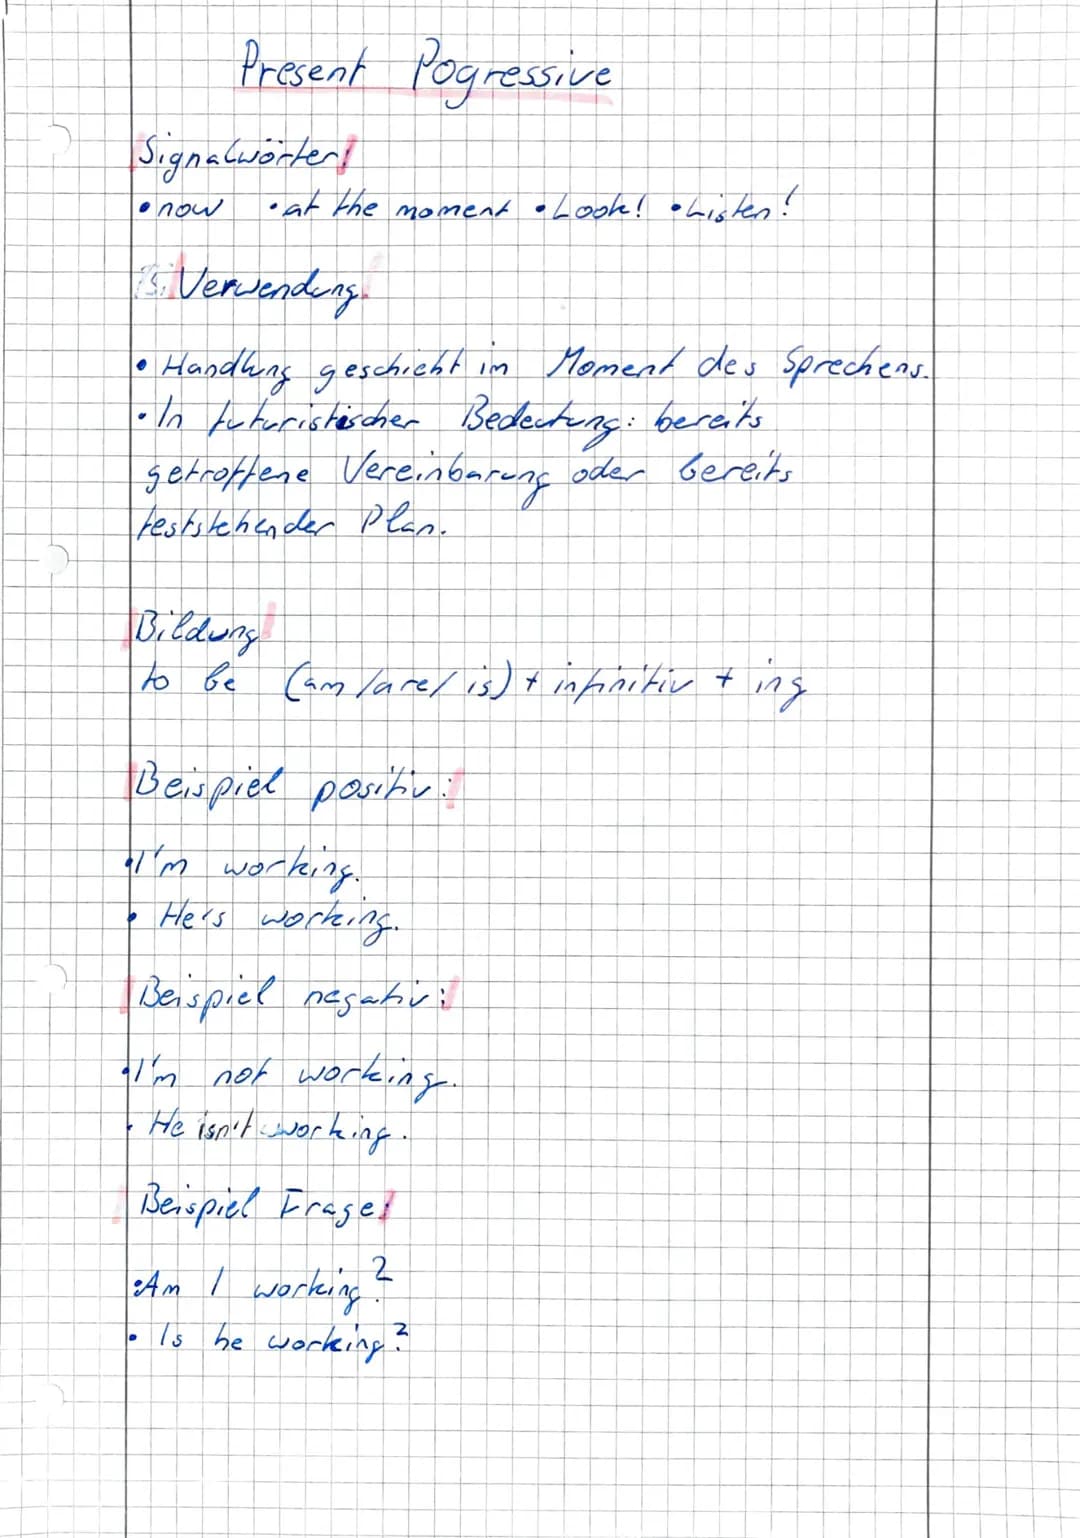 Present Pogressive
Signalwörter
• now • at the moment • Look! • Listen!
Verwendung
• Handlung geschieht im Moment des Sprechens.
• In futuristischer Bedeutung: bereits
getroffene Vereinbarung oder bereits
feststehender Plan.
Bildung
to be (am/are/is) + infinitiv + ing
Beispiel positiv:
• I'm working.
• He's working.
Beispiel negativ:
• I'm not working.
• He isn't working.
Beispiel Frage:
• Am I working?
• Is he working?